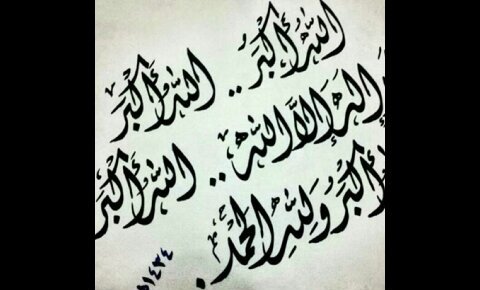 الله أكبر .. الله أكبر
إله إلا الله .. الله أكبر
أكبر ولله الحمد .
١٤٣٤